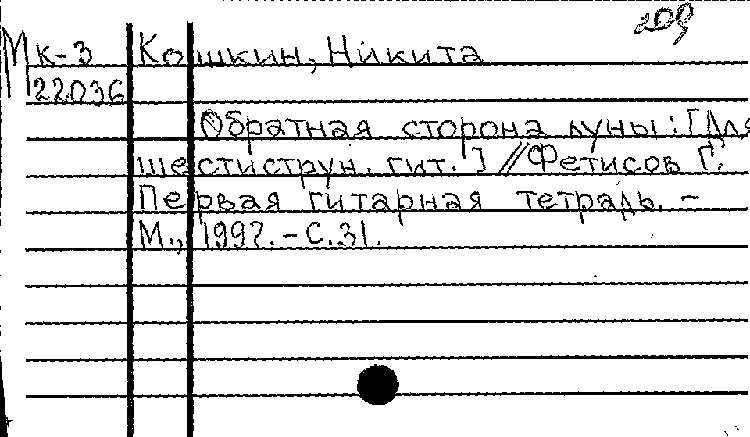 209
М К-3 Кошкин, Никита
22036
Обратная сторона луны: [Для
шестиструн. гит.] // Фетисов Г.
Первая гитарная тетрадь. –
М., 1997. – С. 31.